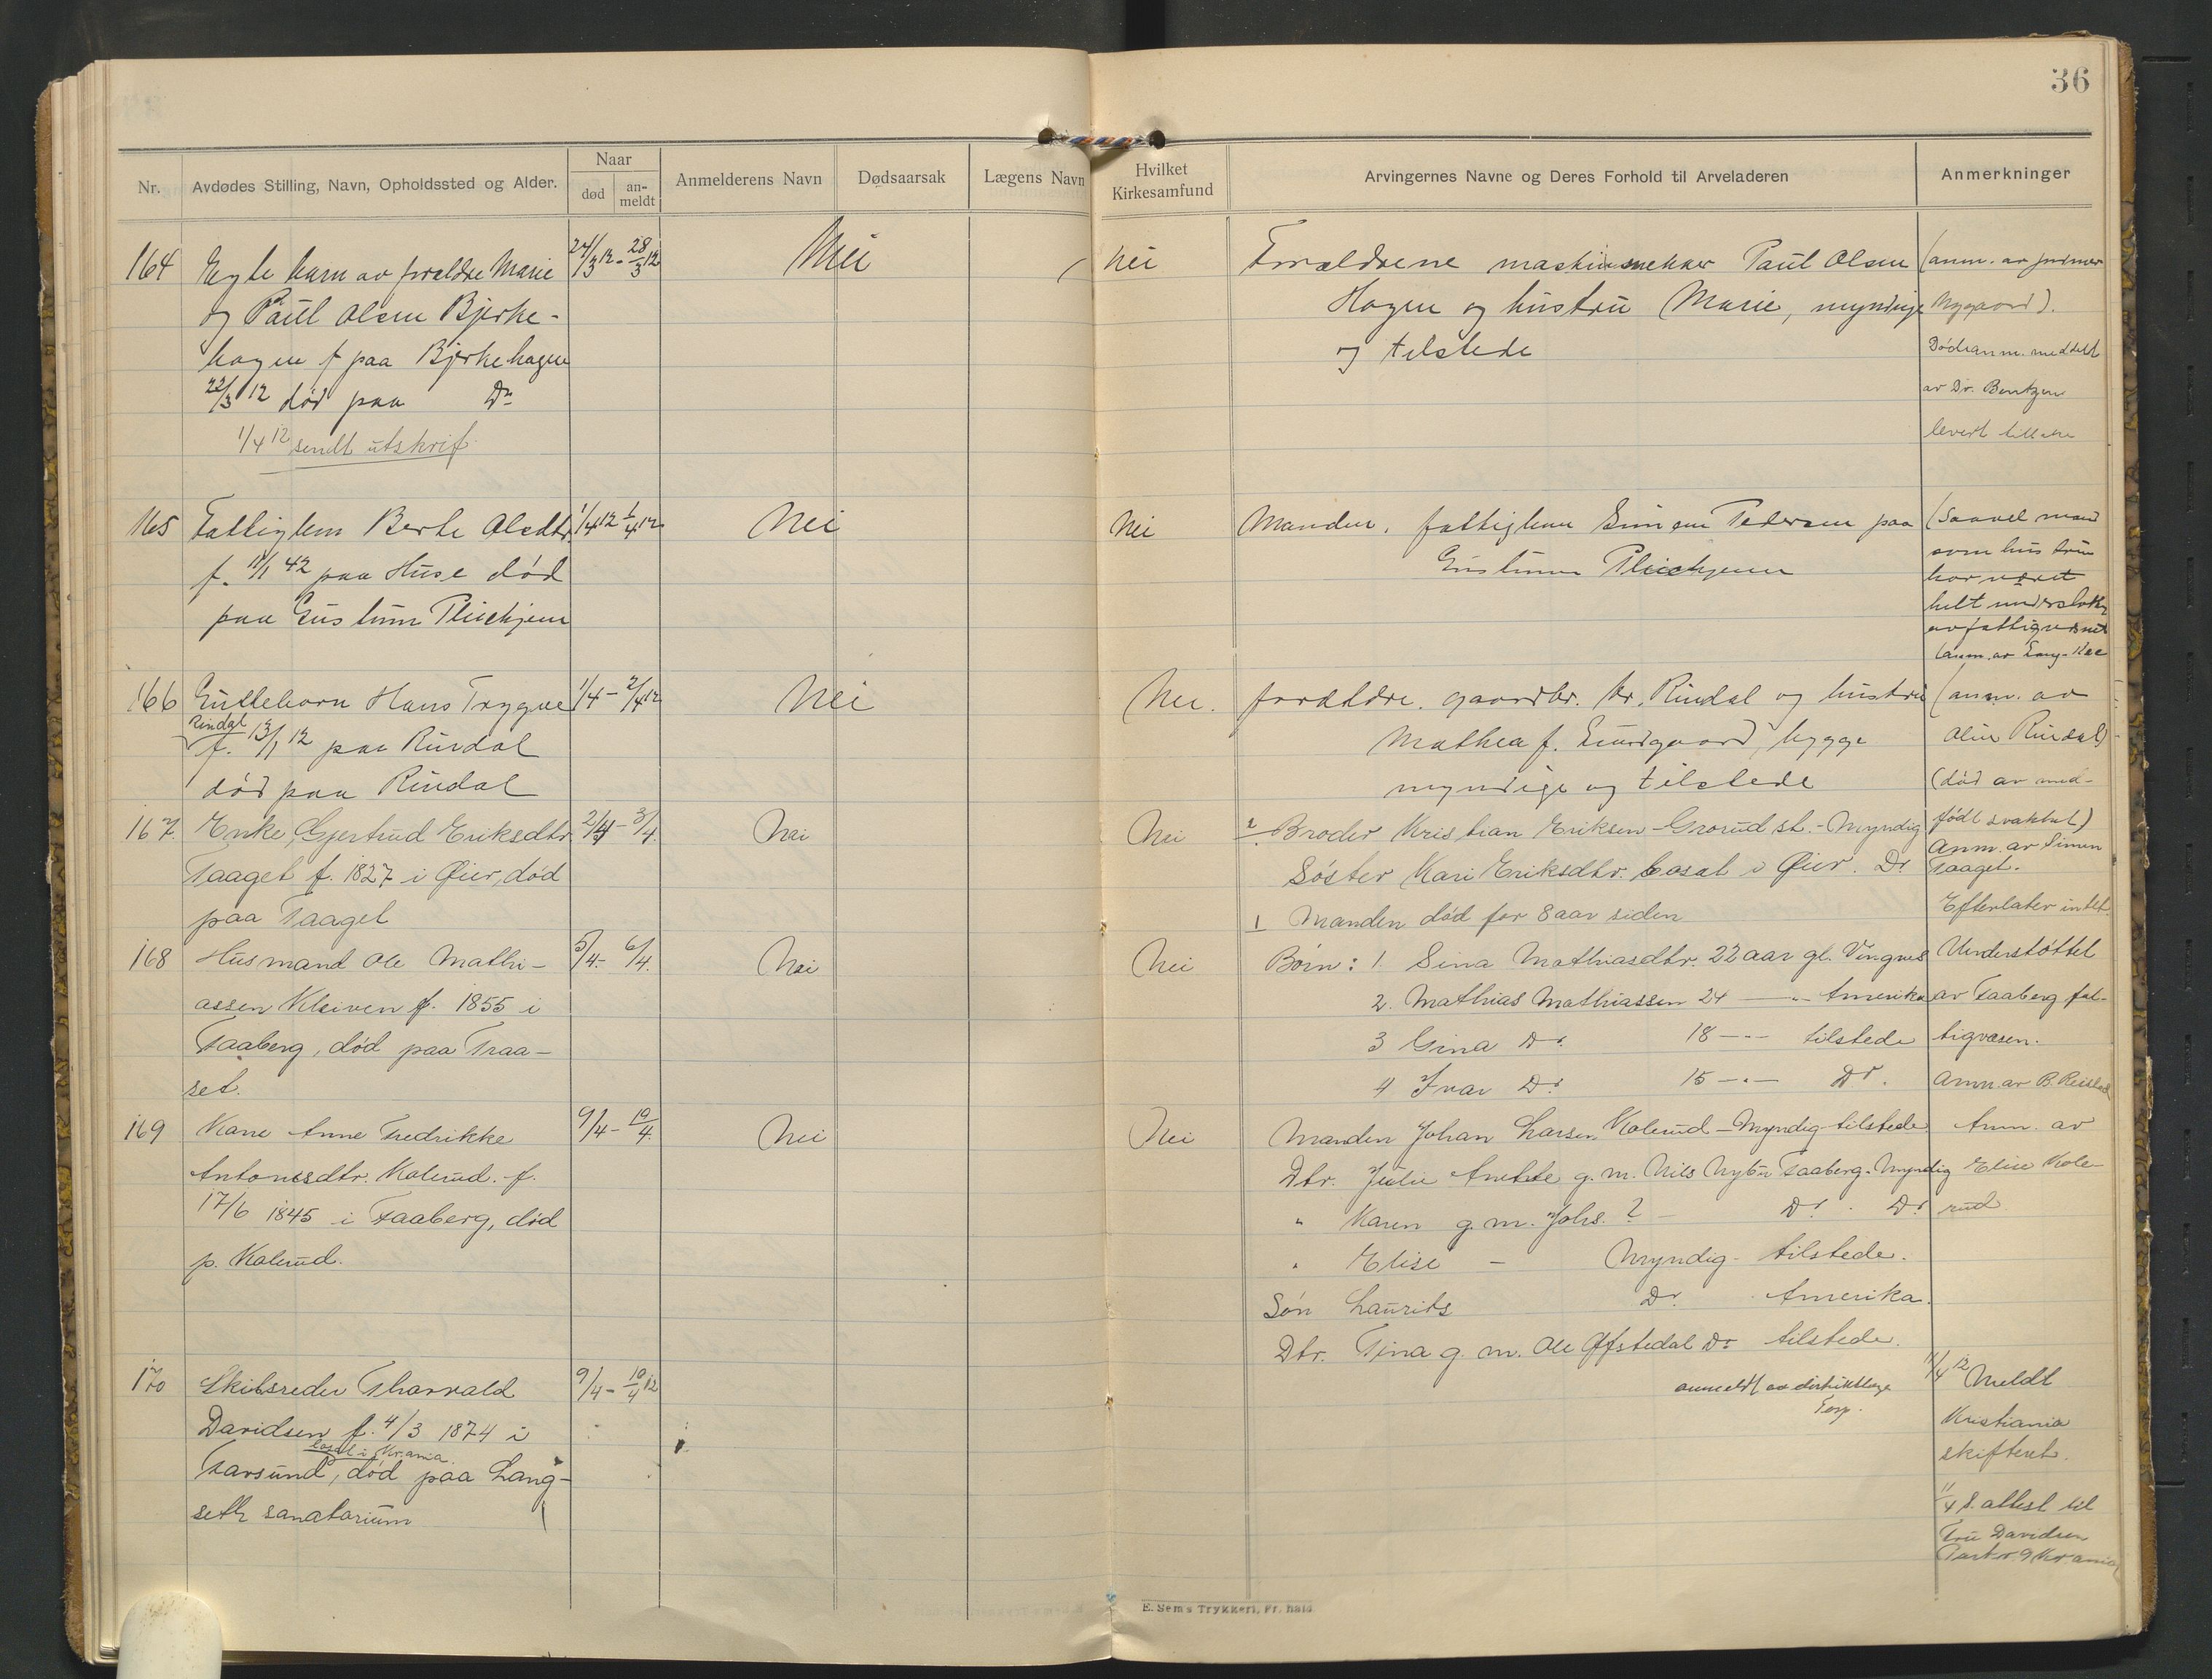 36
Nr.
Avdødes Stilling, Navn, Opholdssted og Alder.
Naar
død
an-
meldt
Anmelderens Navn
Dødsaarsak
Lægens Navn
Hvilket
Kirkesamfund
Arvingernes Navne og Deres Forhold til Arveladeren
Anmerkninger
164
Egte barn av foreldre Marie
og Paul Olsen Bjerke-
hagen f paa Bjerkehagen
22/3 12 død paa Do
1/4 12 sendt utskrif.
24/3 12 - 28/3 12
Nei
Nei
Forældrene maskinsnekker Paul Olsen
Hagen og hustru Marie, myndige
og tilstede
(anm. av
Nygaard).
Dødsanm. meddelt
av Dr. Bentzen
levert
165
Fattiglem Berte Olsdtr.
f. 11/1 42 paa Huse død
paa Gustum Pleiehjem
1/4 12 - 1/4 12
Nei
Nei
Manden, fattiglem Simen Pedersen paa
Gustum Pleiehjem
(Saavel mand
som hustru
har været
helt understøttet
av fattigvesnet
(anm. av
166
Guttebarn Hans Trygve
Rindal
f. 13/1 12 paa Rindal
død paa Rindal
1/4 - 2/4 12
Nei
Nei.
forældre. gaardbr. Kr. Rindal og hustru
Mathea f. begge
myndige og tilstede
(anm. av
Oline Rindal)
(død av med-
født svakhet)
167.
Enke, Gjertrud Eriksdtr.
Taaget f. 1827 i Øier, død
paa Taaget
2/4 - 3/4.
Nei
Nei
2 Broder Kristian Eriksen - Grorud st. - Myndig
Søster Kari Eriksdtr. bosat i Øier. Do
1 Manden død for 8 aar siden
Anm. av Simen
Taaget.
Efterlater intet.
168
Husmand Ole Mathi-
assen Kleiven f. 1855 i
Faaberg, død paa Traa-
set.
5/4. - 6/4.
Nei
Nei
Børn: 1. Sina Mathiasdtr. 22 aar gl. Vingnes
2. Mathias Mathiassen 24 — " — Amerika
3 Gina Do. 18 — " — tilstede
4 Ivar Do. 15 — " — Do.
Understøttet
av Faaberg fat-
tigvæsen.
Anm. av B. Reistad
169
Kone Anne Fredrikke
Antonisdtr. Kolerud. f.
17/6 1845 i Faaberg, død
p. Kolerud.
9/4 - 10/4.
Nei
Nei
Manden Johan Larsen Kolerud - Myndig - tilstede
Dtr. Julie Anette g. m. Nils Nybu Faaberg. Myndig
" Karen g. m. Johs. ? - Do. - Do
" Elise - Myndig - tilstede.
Søn Laurits Do. Amerika.
Dtr. Tina g. m. Ole Offstedal Do tilstede.
Anm. av
Elise Kole-
rud.
170
Skibsreder Tharvald
Davidsen f. 4/3 1874 i
bosat i Kr.ania.
Farsund, død paa Lang-
seth sanatorium
9/4 - 10/4 12
anmeldt av distriktlæge
Torp.
11/4 12 Meldt
Kristiania
skifteret.
11/4 S. attest til
Fru Davidsen
9 Kr.ania
E. Sem's Trykkeri, Fr. hald